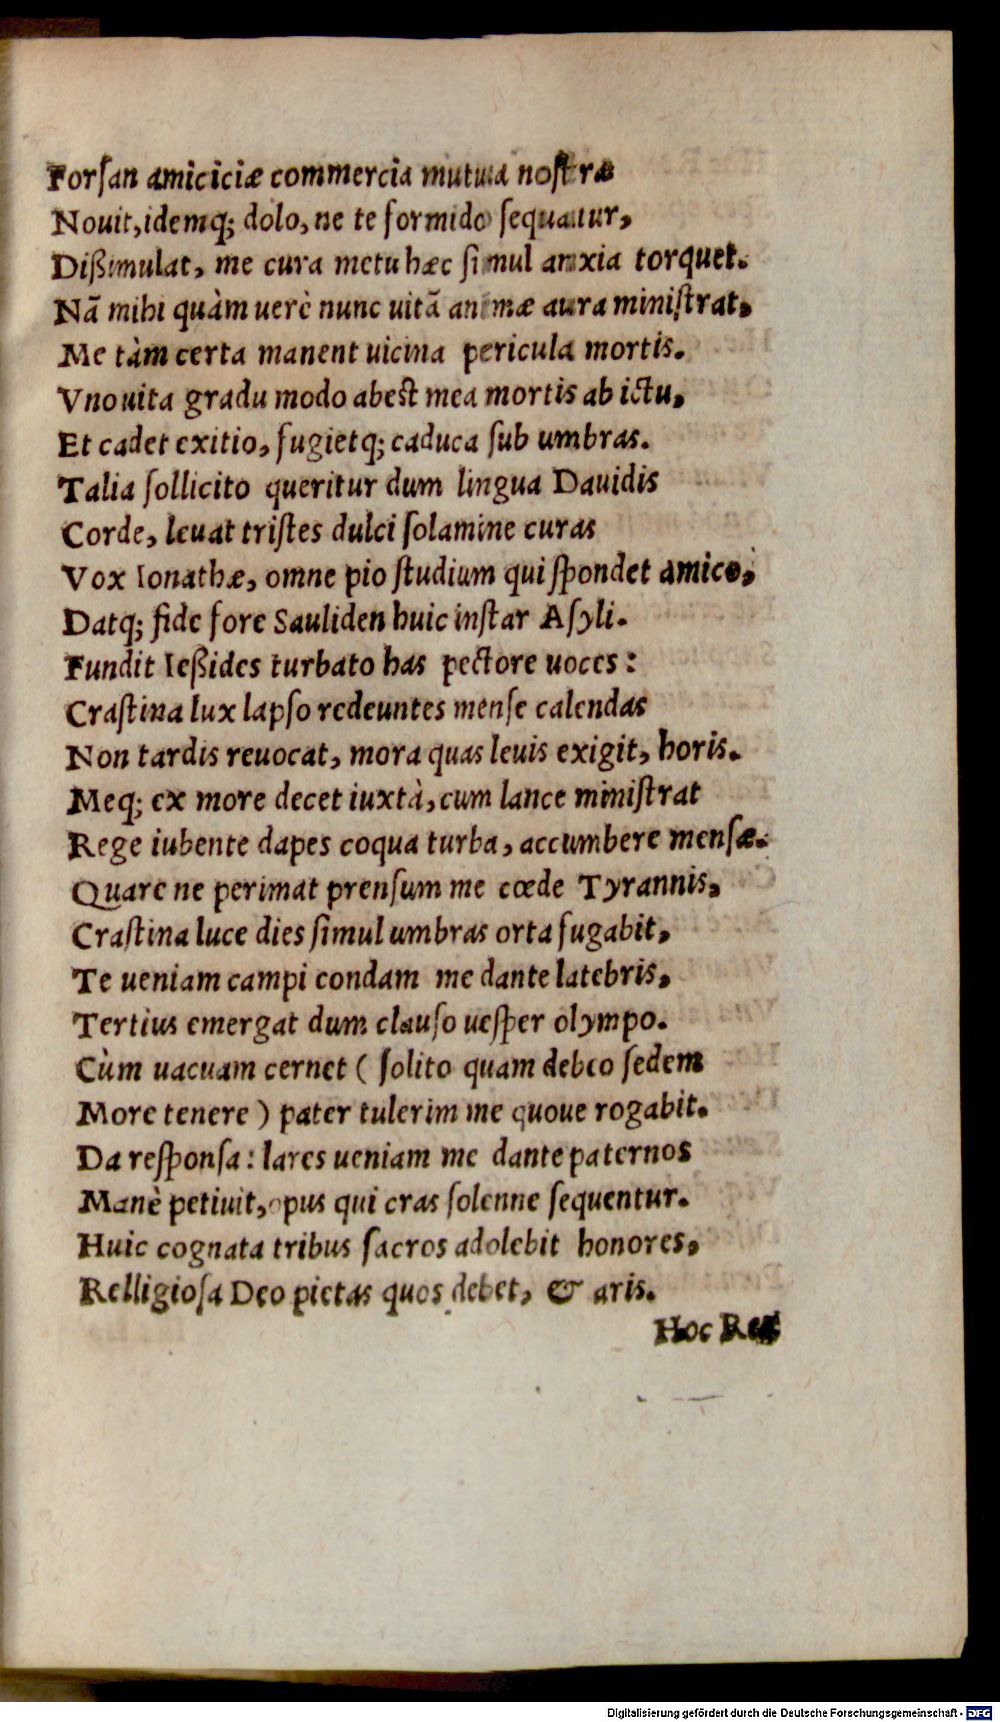 Forſan amiciciæ commercia mutua noſtræ
Nouit, idemq; dolo, ne te formido ſequatur,
Dißimulat, me cura metu hæc ſimul anxia torquet.
Nã mihi quàm uerè nunc uitã animæ aura miniſtrat,
Me tàm certa manent uicina pericula mortis.
Vno uita gradu modo abest mea mortis ab ictu,
Et cadet exitio, fugietq; caduca ſub umbras.
Talia ſollicito queritur dum lingua Dauidis
Corde, leuat triſtes dulci ſolamine curas
Vox Ionathæ, omne pio ſtudium qui ſpondet amico,
Datq; fide fore Sauliden huic inſtar Aſyli.
Fundit Ießides turbato has pectore uoces:
Craſtina lux lapſo redeuntes menſe calendas
Non tardis reuocat, mora quas leuis exigit, horis.
Meq; ex more decet iuxtà, cum lance miniſtrat
Rege iubente dapes coqua turba, accumbere menſæ.
Quare ne perimat prenſum me cœde Tyrannis,
Craſtina luce dies ſimul umbras orta fugabit,
Te ueniam campi condam me dante latebris,
Tertius emergat dum clauſo ueſper olympo.
Cùm uacuam cernet ( ſolito quam debeo ſedem
More tenere ) pater tulerim me quoue rogabit.
Da reſponſa: lares ueniam me dante paternos
Manè petiuit, opus qui cras ſolenne ſequentur.
Huic cognata tribus ſacros adolebit honores,
Relligioſa Deo pietas quos debet, & aris.
Hoc Rex
Digitalisierung gefördert durch die Deutsche Forschungsgemeinschaft - DFG